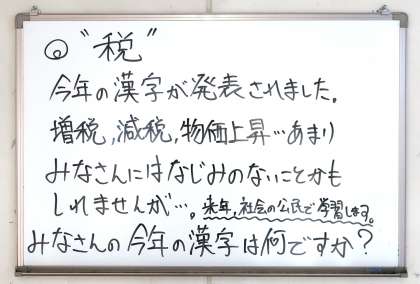 ◎“税”
今年の漢字が発表されました。
増税,減税,物価上昇…あまり
みなさんにはなじみのないことかも
しれませんが…。来年,社会の公民で学習します。
みなさんの今年の漢字は何ですか?